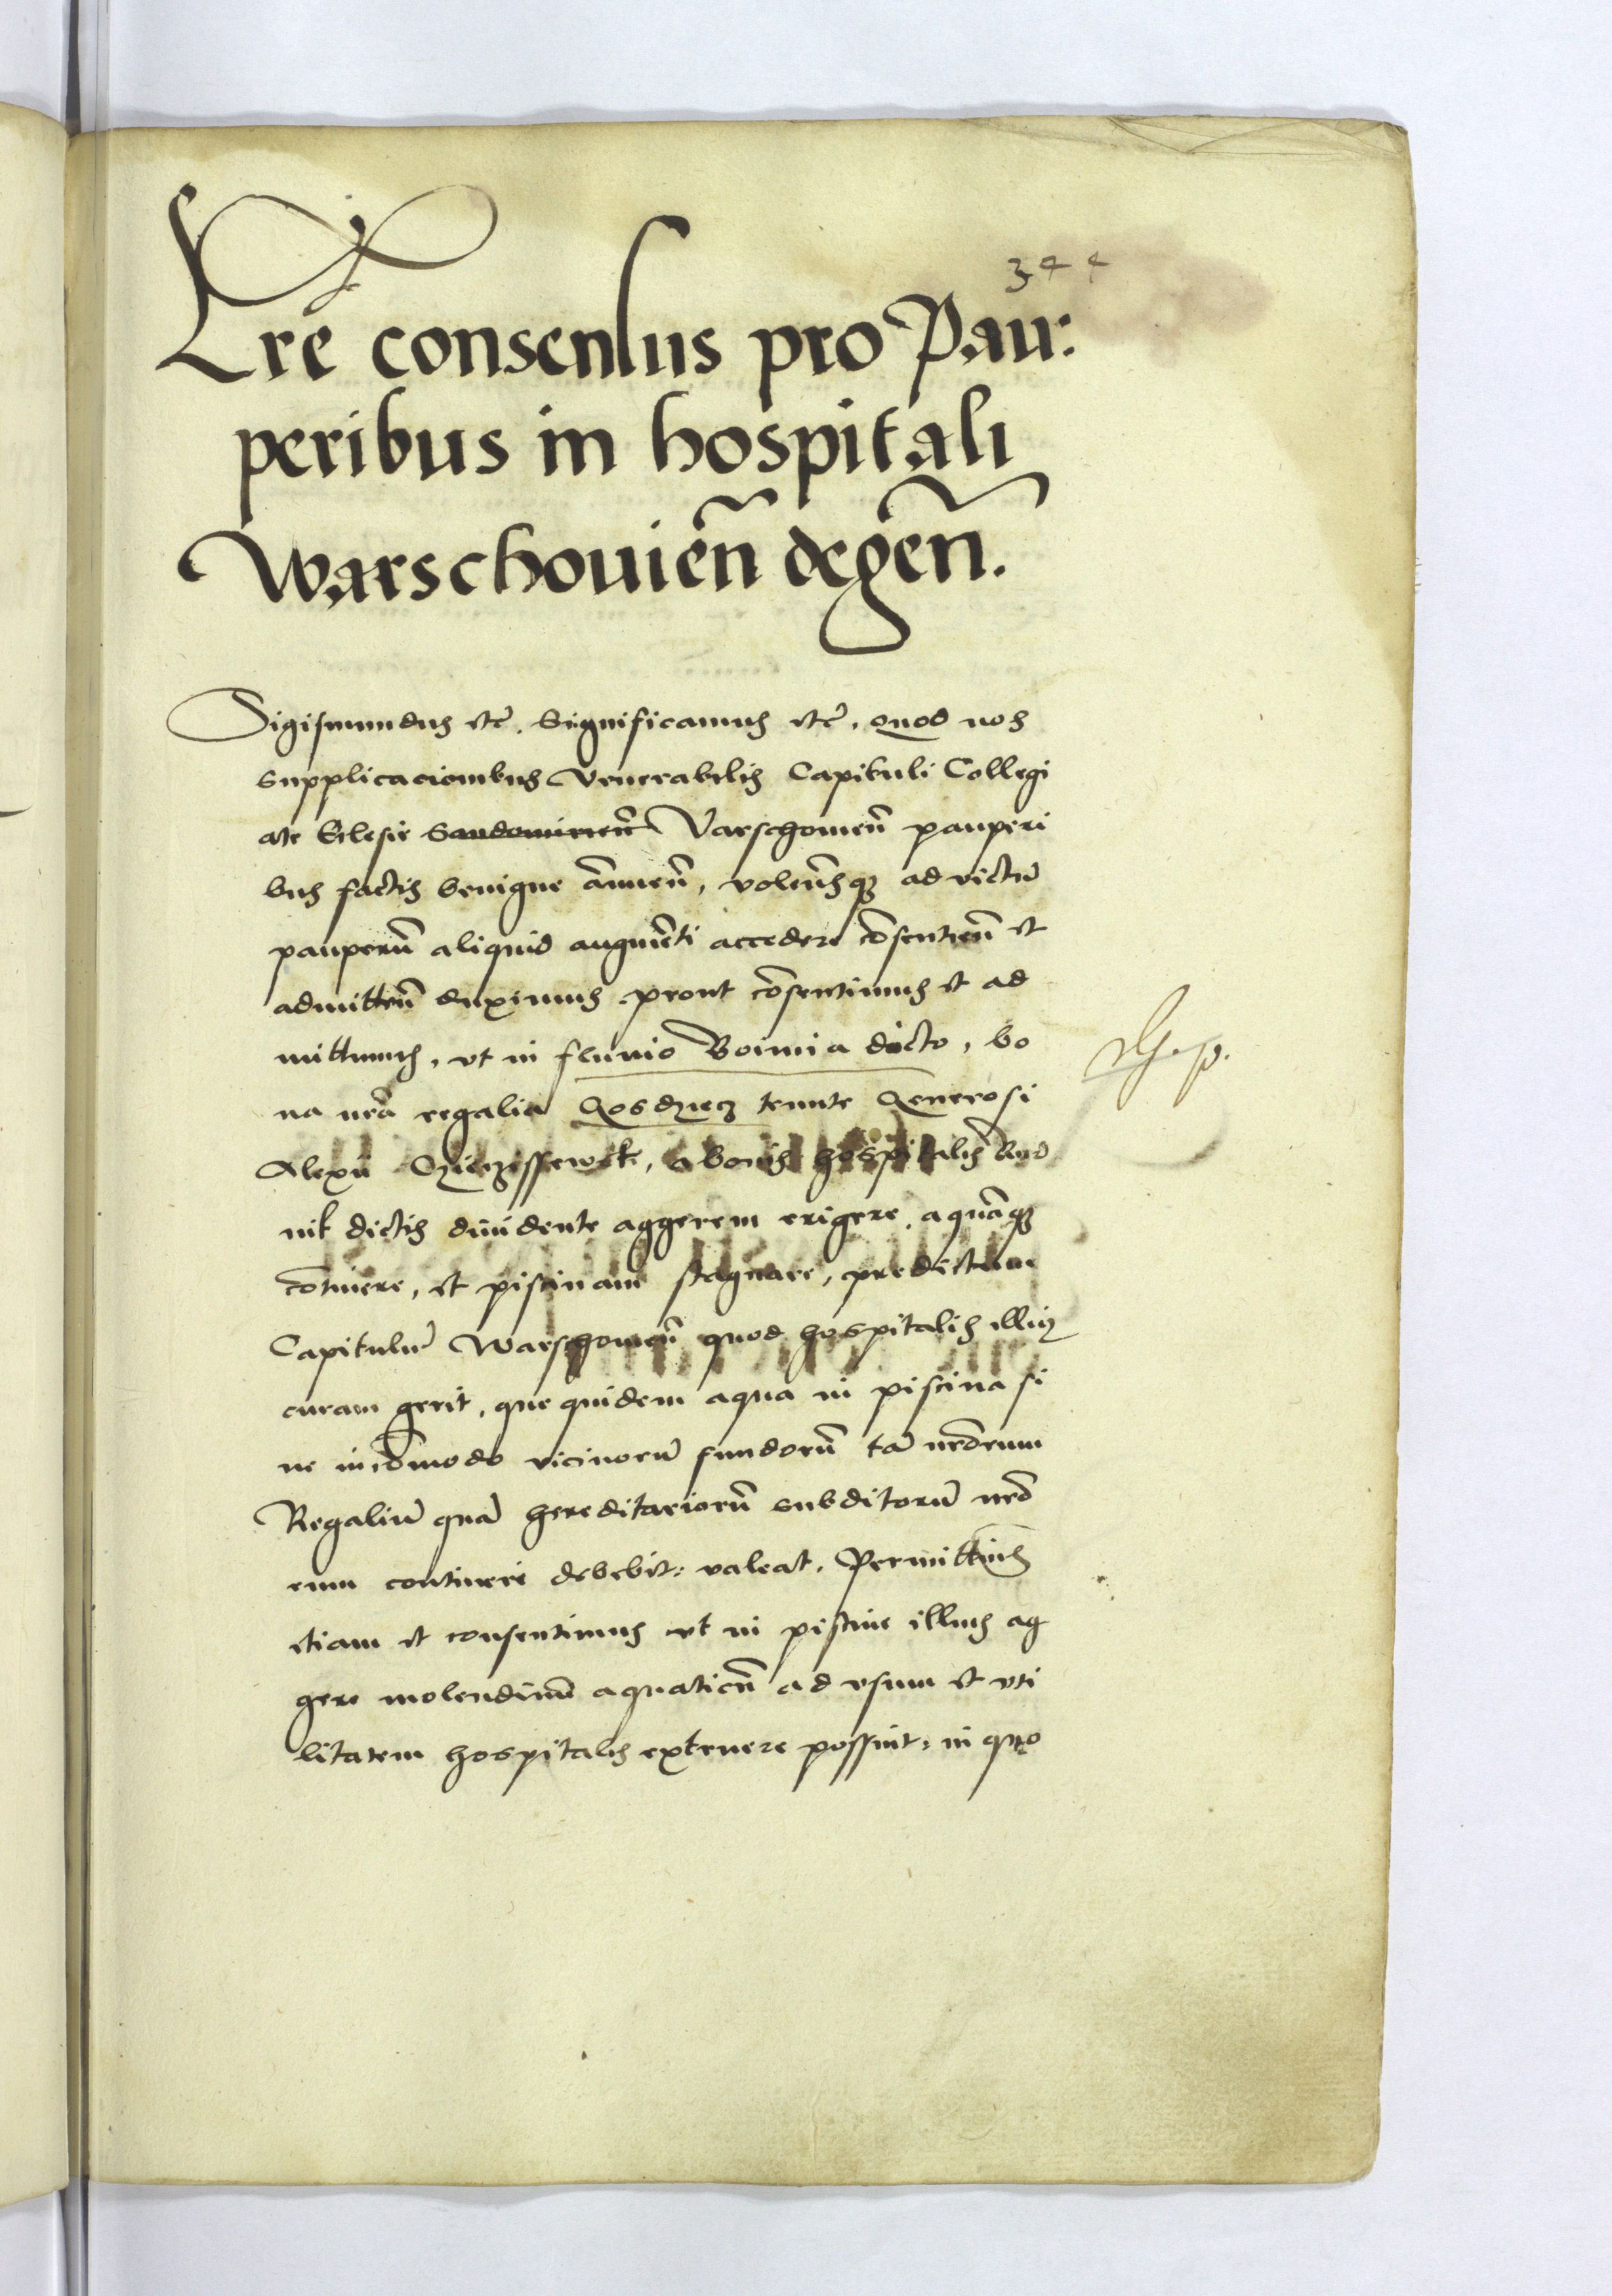 344
Lre consensus pro Pau:
peribus in hospitali
Warschouień degeñ.
Sigismundus etc̃. Significamus etc̃. quod nos
supplicacionibus Venerabilis Capituli Collegi
ate Eclesie Sandomirień Varschouień pauperi
bus factis benigne ãnnueñ, voleñsq3 ad victũ
pauperũ aliquid augmẽti accedere cõsentieñ et
admitteñ duximus prout cõsentimus et ad
mittimus, vt in fluuio Bonnia dicto, bo
na nrã regalia Gosdziecz tenute Generosi
Alexii, a bonis hospitalis Rud
nik dictis diuidente aggerem erigere, aquãq3
cõtinere, et piscinam stagnare, predictum
Capitulũ Warschouieñ quod hospitalis illius
curam gerit, que quidem aqua in piscina si
ne incõmodo vicinorũ fundorũ tã nrõrum
Regaliũ quã hereditariorũ subditorũ nrõ
rum contineri debebit: valeat. Permittim9
etiam et consentimus vt in piscine illius ag
gere molendinũ aquaticũ ad vsum et vti
litatem hospitalis extruere possint: in quo